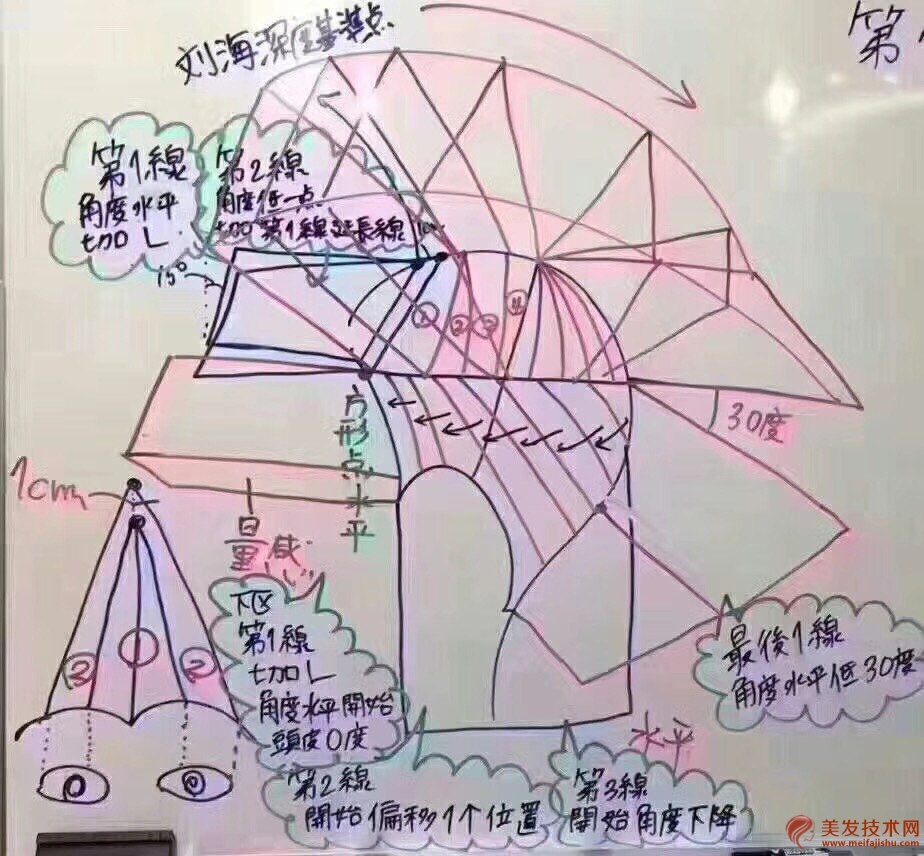 刘海深度基準点
第
第1線
角度水平
切口L
第2線
角度低一点
切口第1線延長線
15°
1
2
3
4
方形点水平
30度
1cm
量減
3
2
下区
第1線
切口L
角度水平開始
頭皮0度
最後1線
角度水平低30度
水平
第2線
開始偏移1个位置
第3線
開始角度下降
美发技术网
www.meifajishu.com